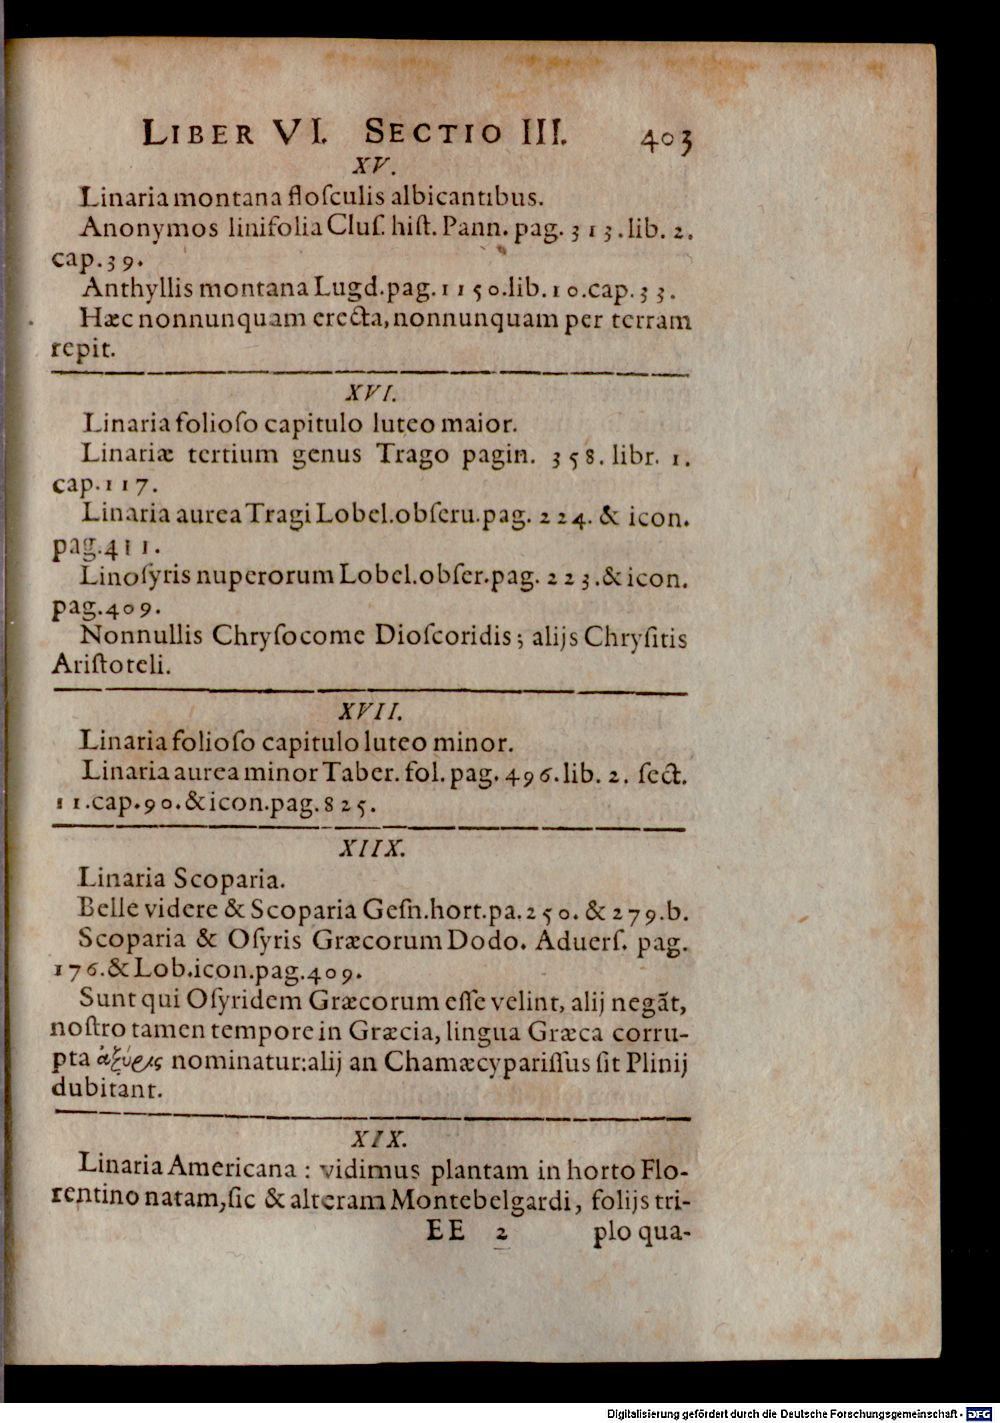 LIBER VI. SECTIO III. 403
XV.
Linaria montana floſculis albicantibus.
Anonymos linifolia Cluſ. hiſt. Pann. pag. 313. lib. 2.
cap. 39.
Anthyllis montana Lugd. pag. 1150. lib. 10. cap. 33.
Hæc nonnunquam erecta, nonnunquam per terram
repit.
XVI.
Linaria folioſo capitulo luteo maior.
Linariæ tertium genus Trago pagin. 358. libr. 1.
cap. 117.
Linaria aurea Tragi Lobel. obſeru. pag. 224. & icon.
pag. 411.
Linoſyris nuperorum Lobel. obſer. pag. 223. & icon.
pag. 409.
Nonnullis Chryſocome Dioſcoridis; alijs Chryſitis
Ariſtoteli.
XVII.
Linaria folioſo capitulo luteo minor.
Linaria aurea minor Taber. fol. pag. 496. lib. 2. ſect.
11. cap. 90. & icon. pag. 825.
XIIX.
Linaria Scoparia.
Belle videre & Scoparia Geſn. hort. pa. 250. & 279. b.
Scoparia & Oſyris Græcorum Dodo. Aduerſ. pag.
176. & Lob. icon. pag. 409.
Sunt qui Oſyridem Græcorum eſſe velint, alij negãt,
noſtro tamen tempore in Græcia, lingua Græca corru-
pta ἀξύρις nominatur: alij an Chamæcypariſſus ſit Plinij
dubitant.
XIX.
Linaria Americana : vidimus plantam in horto Flo-
rentino natam, ſic & alteram Montebelgardi, folijs tri-
EE 2 plo qua-
Digitalisierung gefördert durch die Deutsche Forschungsgemeinschaft - DFG